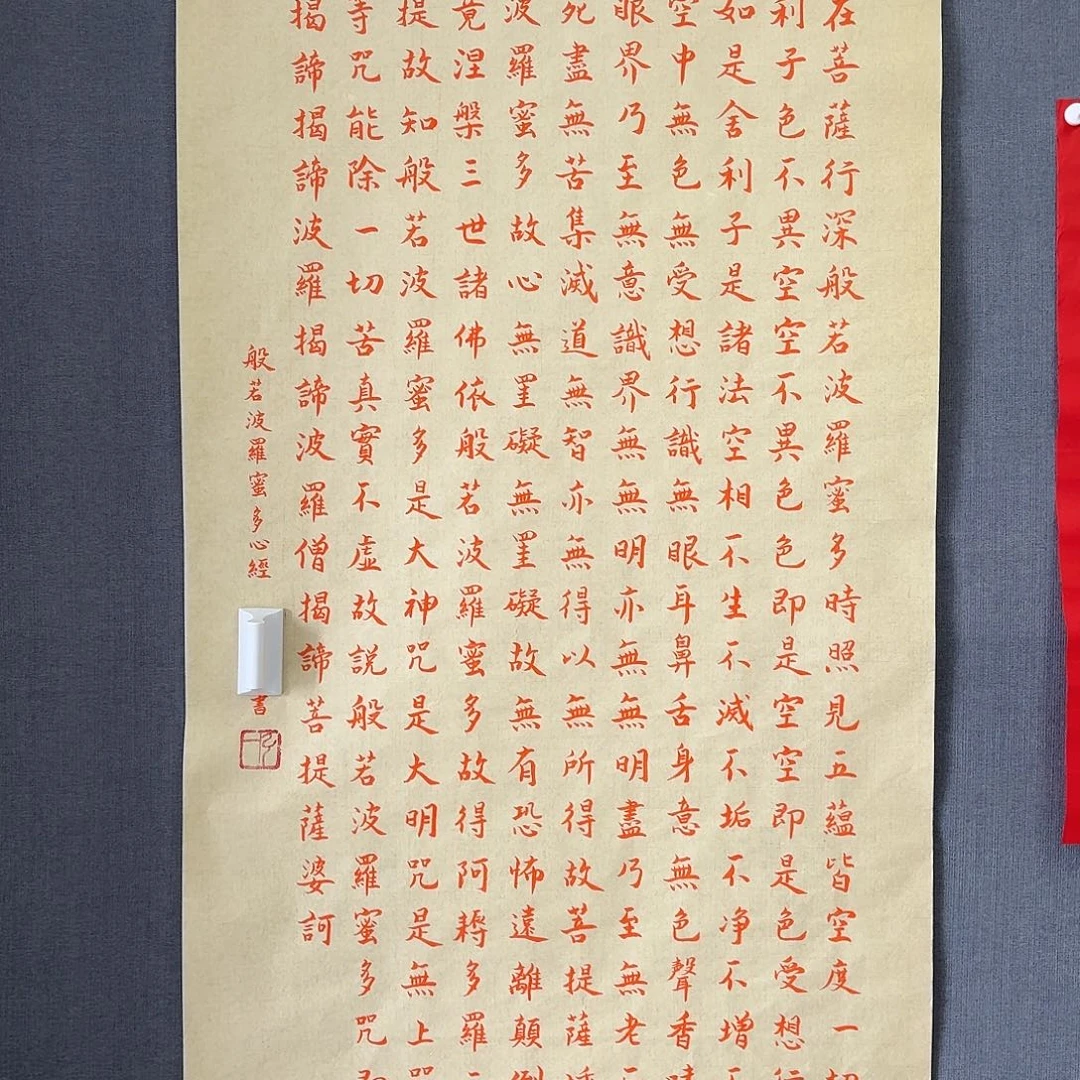 在菩薩行深般若波羅蜜多時照見五蘊皆空度一切
利子色不異空空不異色色即是空空即是色受想行
如是舍利子是諸法空相不生不滅不垢不净不增不
空中無色無受想行識無眼耳鼻舌身意無色聲香味
眼界乃至無意識界無無明亦無無明盡乃至無老死
死盡無苦集滅道無智亦無得以無所得故菩提薩埵
波羅蜜多故心無罣礙無罣礙故無有恐怖遠離顛倒
竟涅槃三世諸佛依般若波羅蜜多故得阿耨多羅三
提故知般若波羅蜜多是大神咒是大明咒是無上咒
等咒能除一切苦真實不虛故説般若波羅蜜多咒即
揭諦揭諦波羅揭諦波羅僧揭諦菩提薩婆訶
般若波羅蜜多心經
書